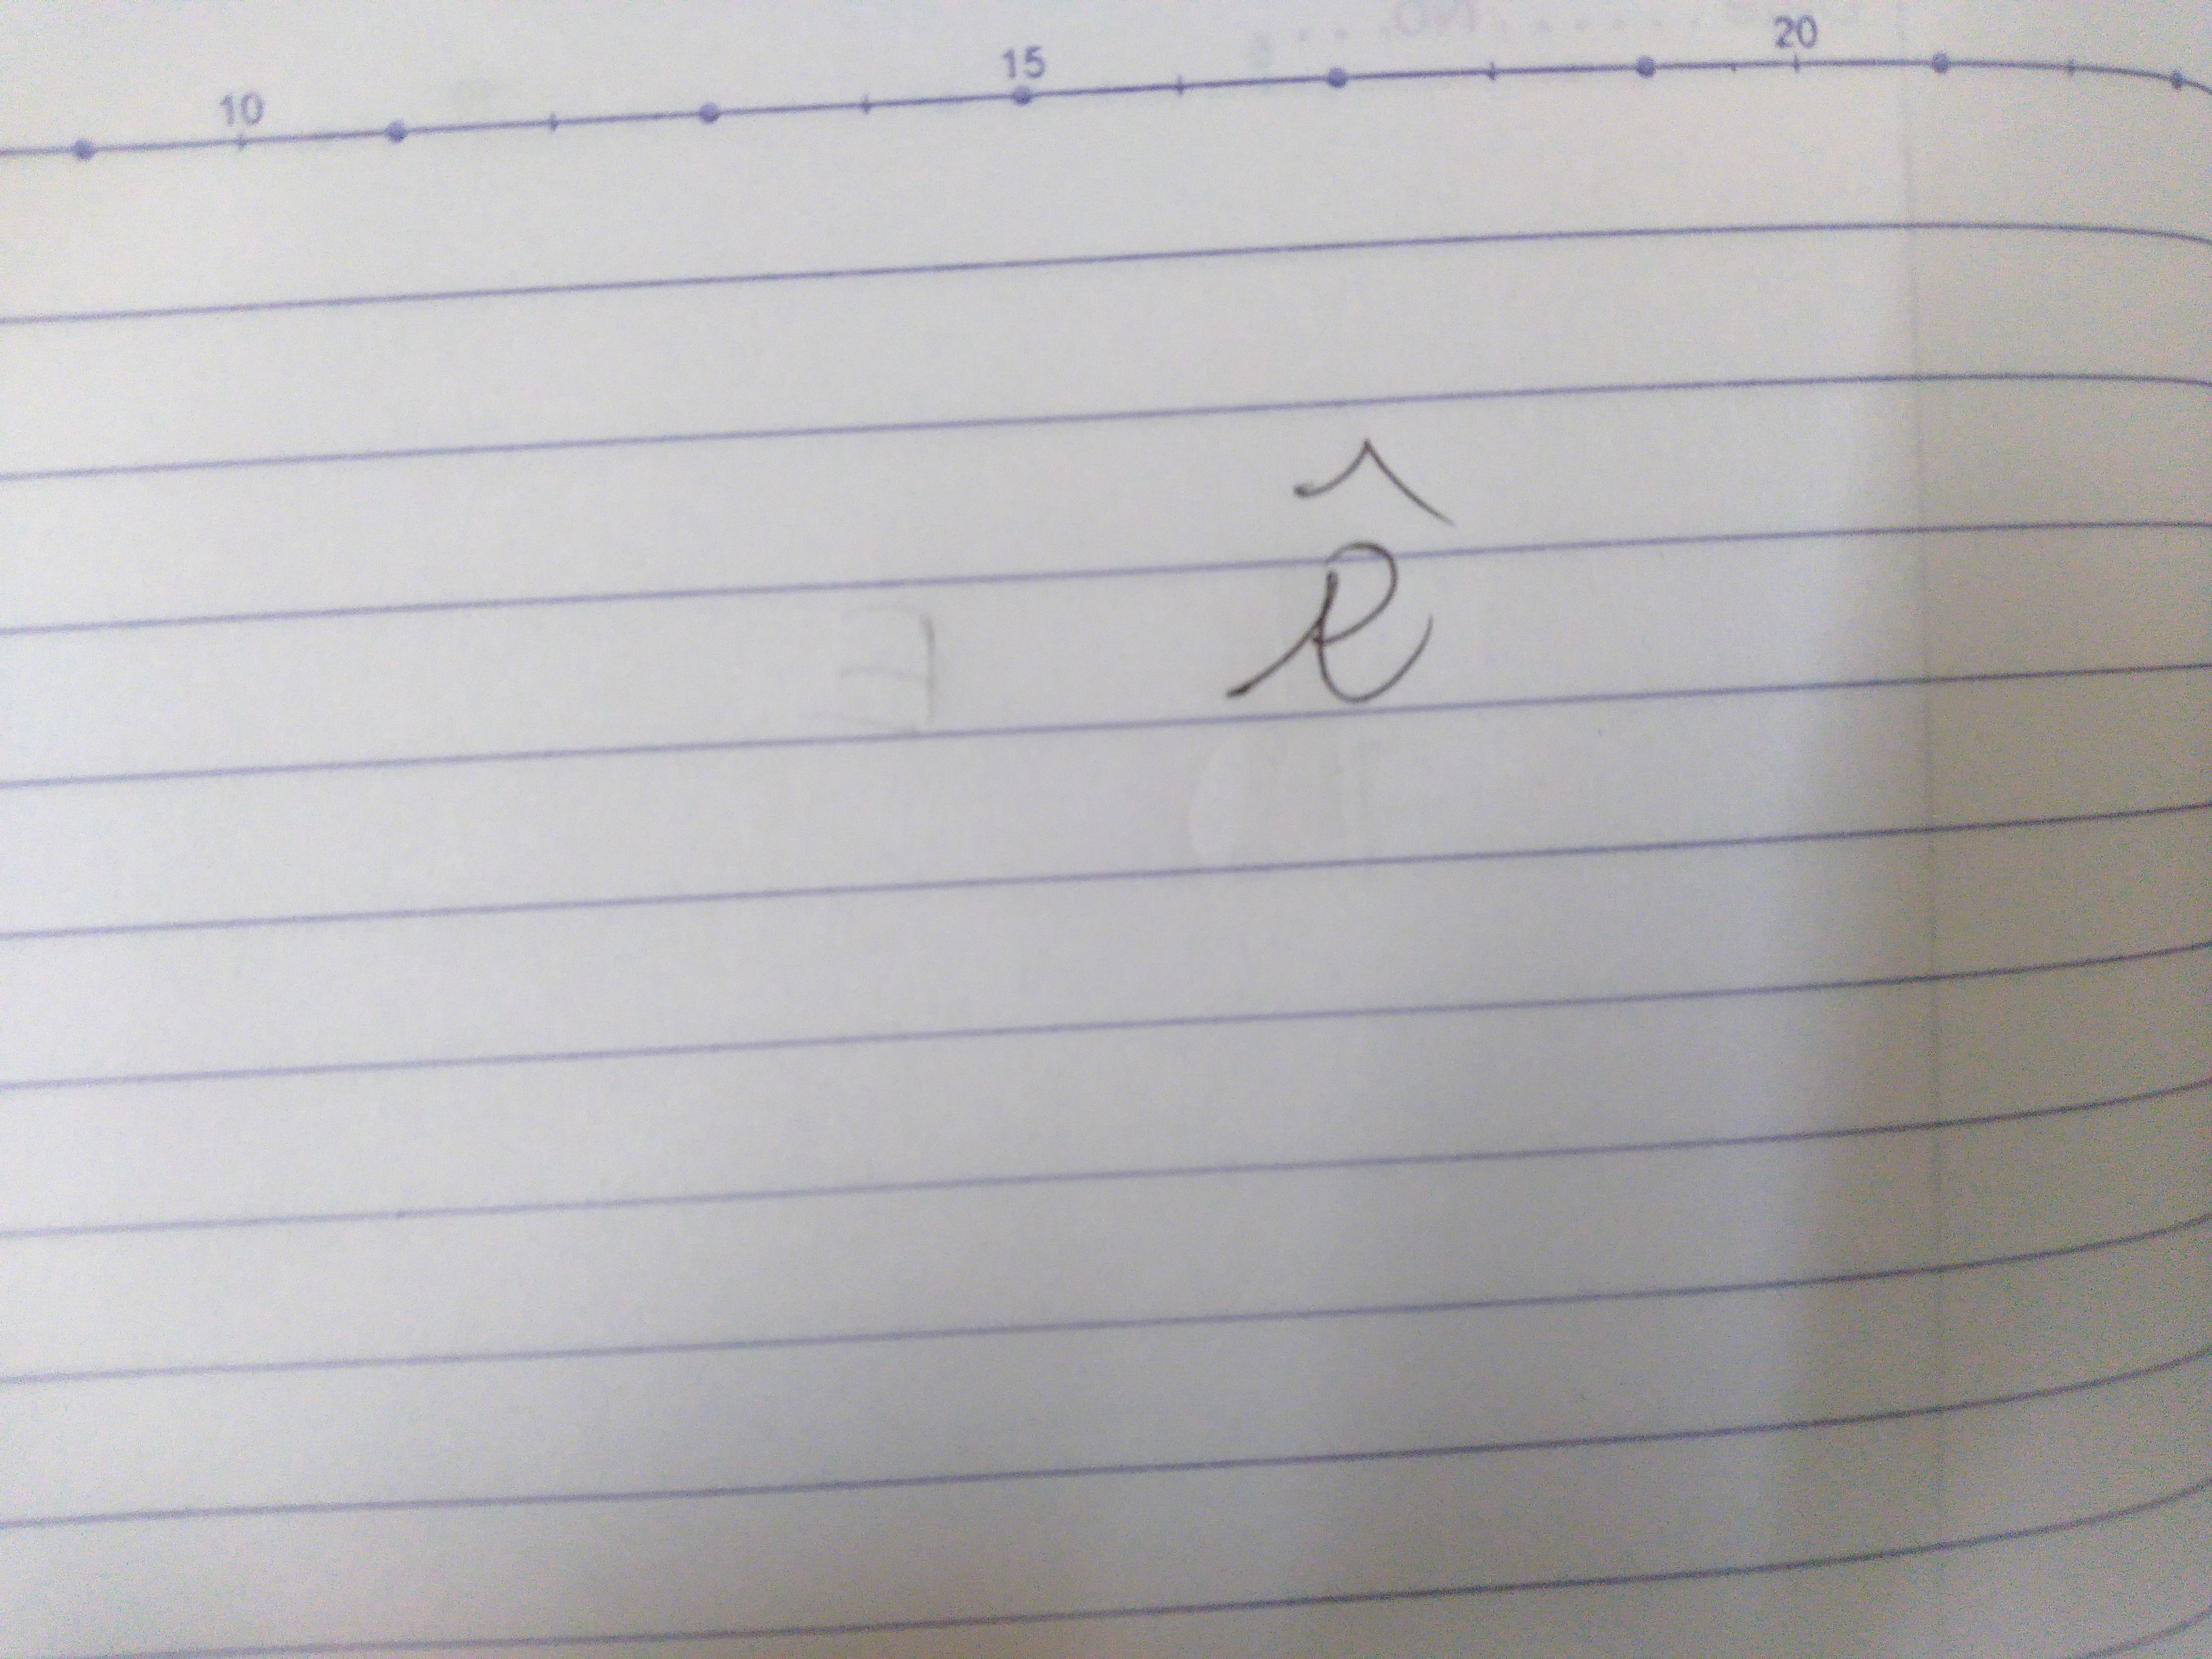 10 15 20
ê